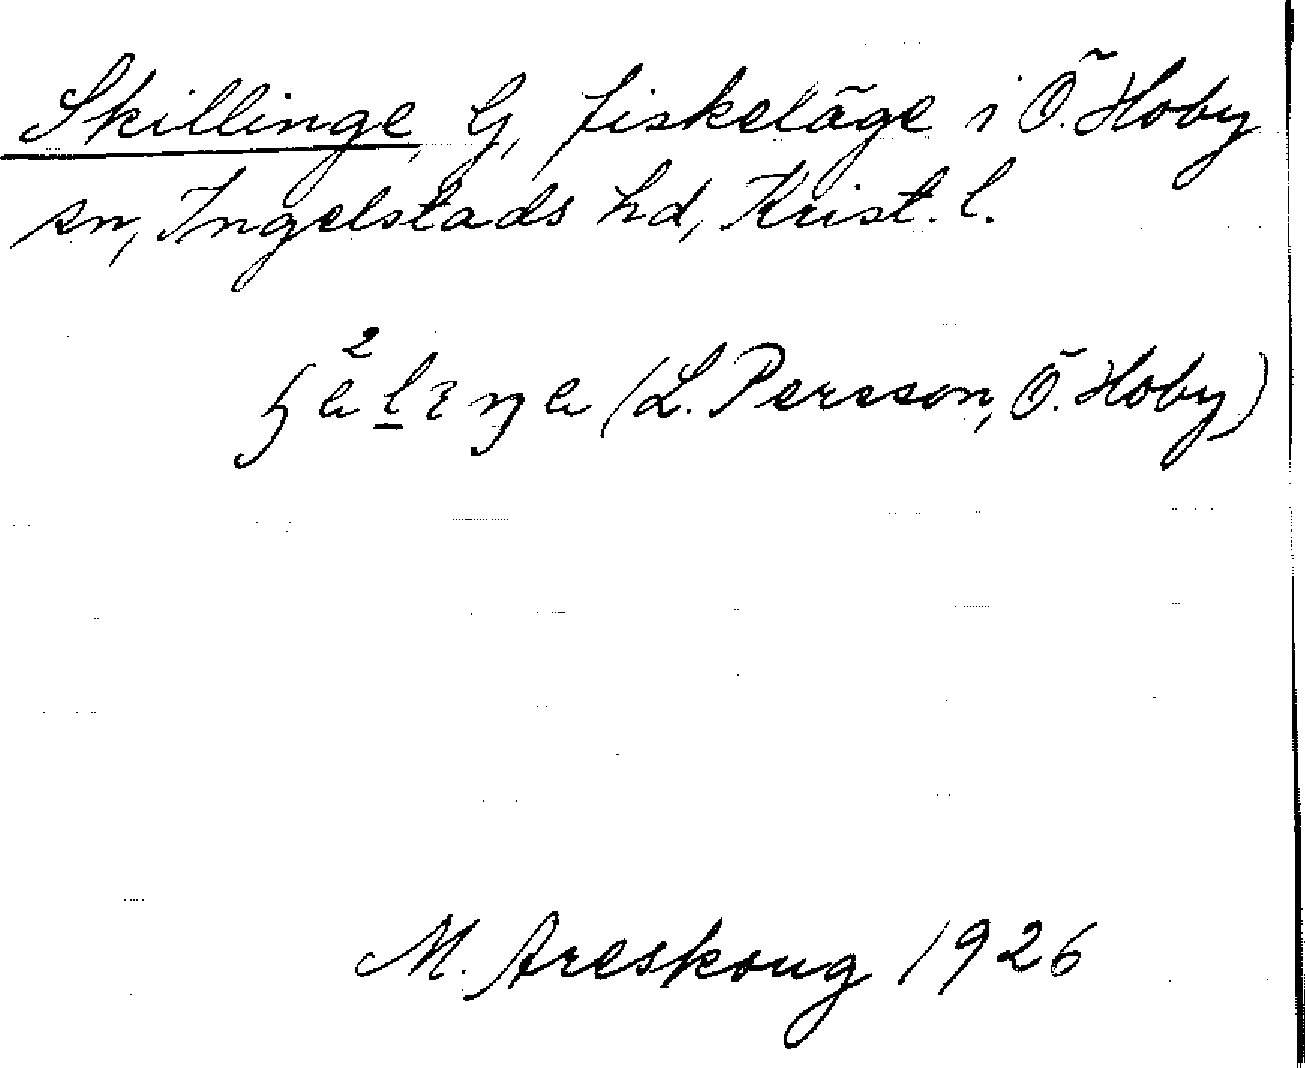 Skillinge, G, fiskeläge i Ö. Hoby
sn, Ingelstads hd, Krist. l.
(L. Persson, Ö. Hoby)
M. Areskoug 1926